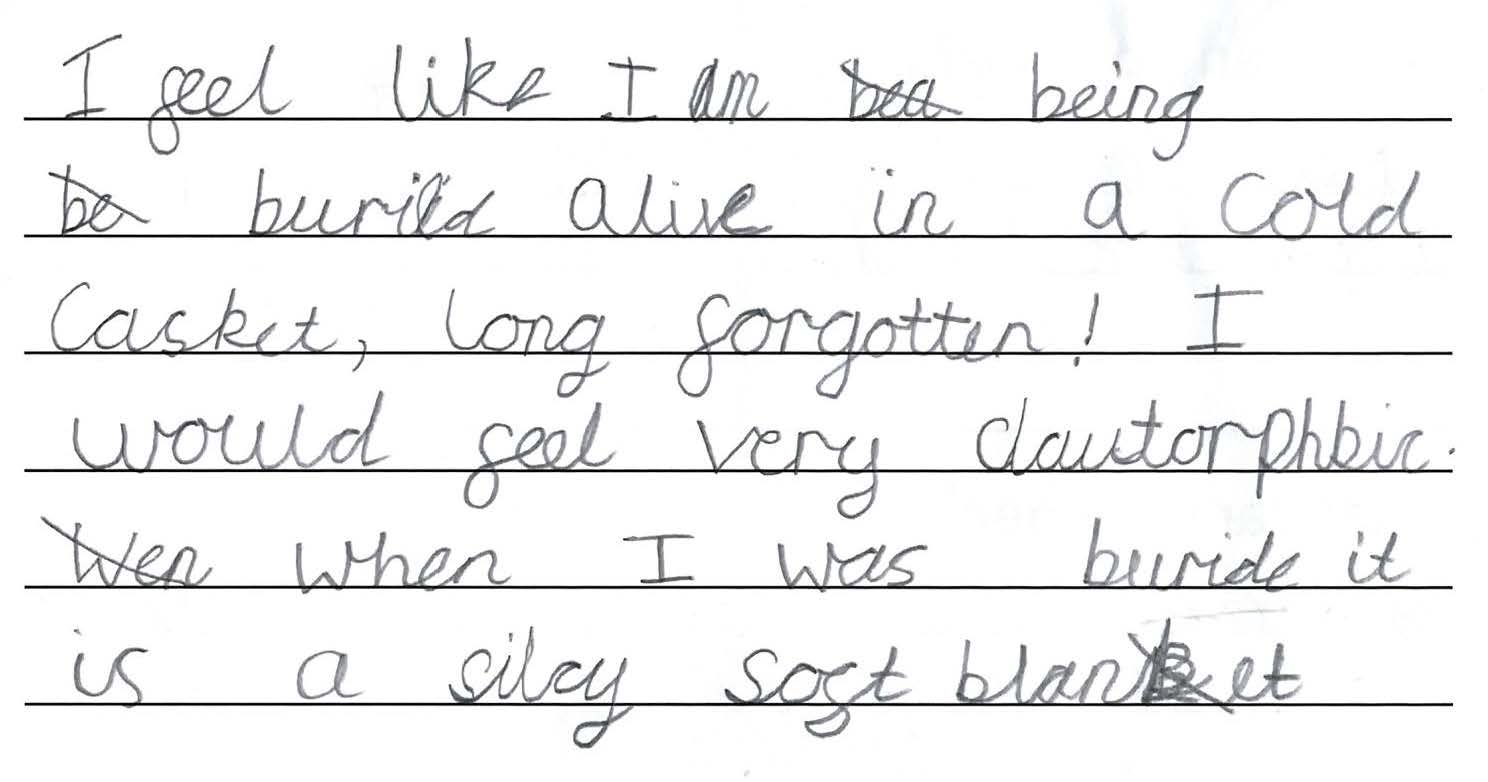 I feel like I am bea being
be buriid alive in a cold
Casket, long forgotten! I
would feel very claustorphbic.
Wen when I was buride it
is a silcy soft blanket